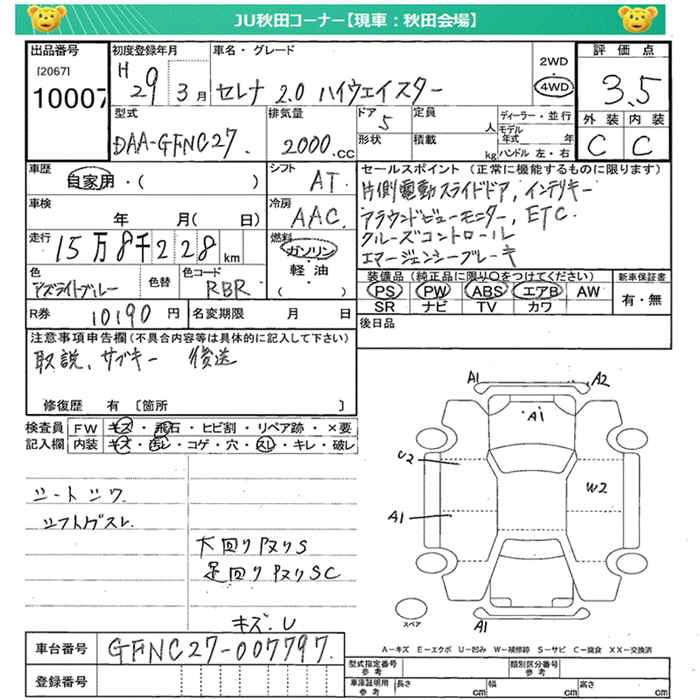 JU秋田コーナー【現車：秋田会場】
出品番号
[2067]
10007
初度登録年月
H 29年 3月
車名・グレード
セレナ 2.0 ハイウェイスター
2WD
4WD
評価点
3.5
外装 内装
C C
型式
DAA-GFNC27.
排気量
2000.cc
ドア 5
形状
定員 人
積載 kg
ディーラー・並行
モデル年式 年
ハンドル 左・右
車歴
自家用・( )
シフト
AT
車検
年 月( 日)
冷房
AAC.
走行
15万8千228km
燃料
ガソリン
軽油
( )
色
アズライトブルー
色替
色コード
RBR
R券 10190 円
名変期限 月 日
セールスポイント (正常に機能するものに限ります)
片側電動スライドドア, インテリキー
アラウンドビューモニター, ETC.
クルーズコントロール
エマージェンシーブレーキ
装備品 (純正品に限り○をつけてください)
PS PW ABS エアB AW
SR ナビ TV カワ
新車保証書
有・無
後日品
注意事項申告欄 (不具合内容等は具体的に記入して下さい)
取説、サブキー 後送
修復歴 有 〔箇所 〕
検査員記入欄
FW キズ・飛石・ヒビ割・リペア跡・×要
内装 キズ・汚レ・コゲ・穴・スレ・キレ・破レ
シートシワ
シフトノブスレ
下回りサビS
足回りサビSC
キズ.U
A1 A2
A1
U2
W2
A1
A1
スペア
A－キズ E－エクボ U－凹み W－補修跡 S－サビ C－腐食 XX－交換済
車台番号 GFNC27-007797.
登録番号
型式指定番号 参考
類別区分番号 参考
車庫証明用 参考
長さ cm
幅 cm
高さ cm